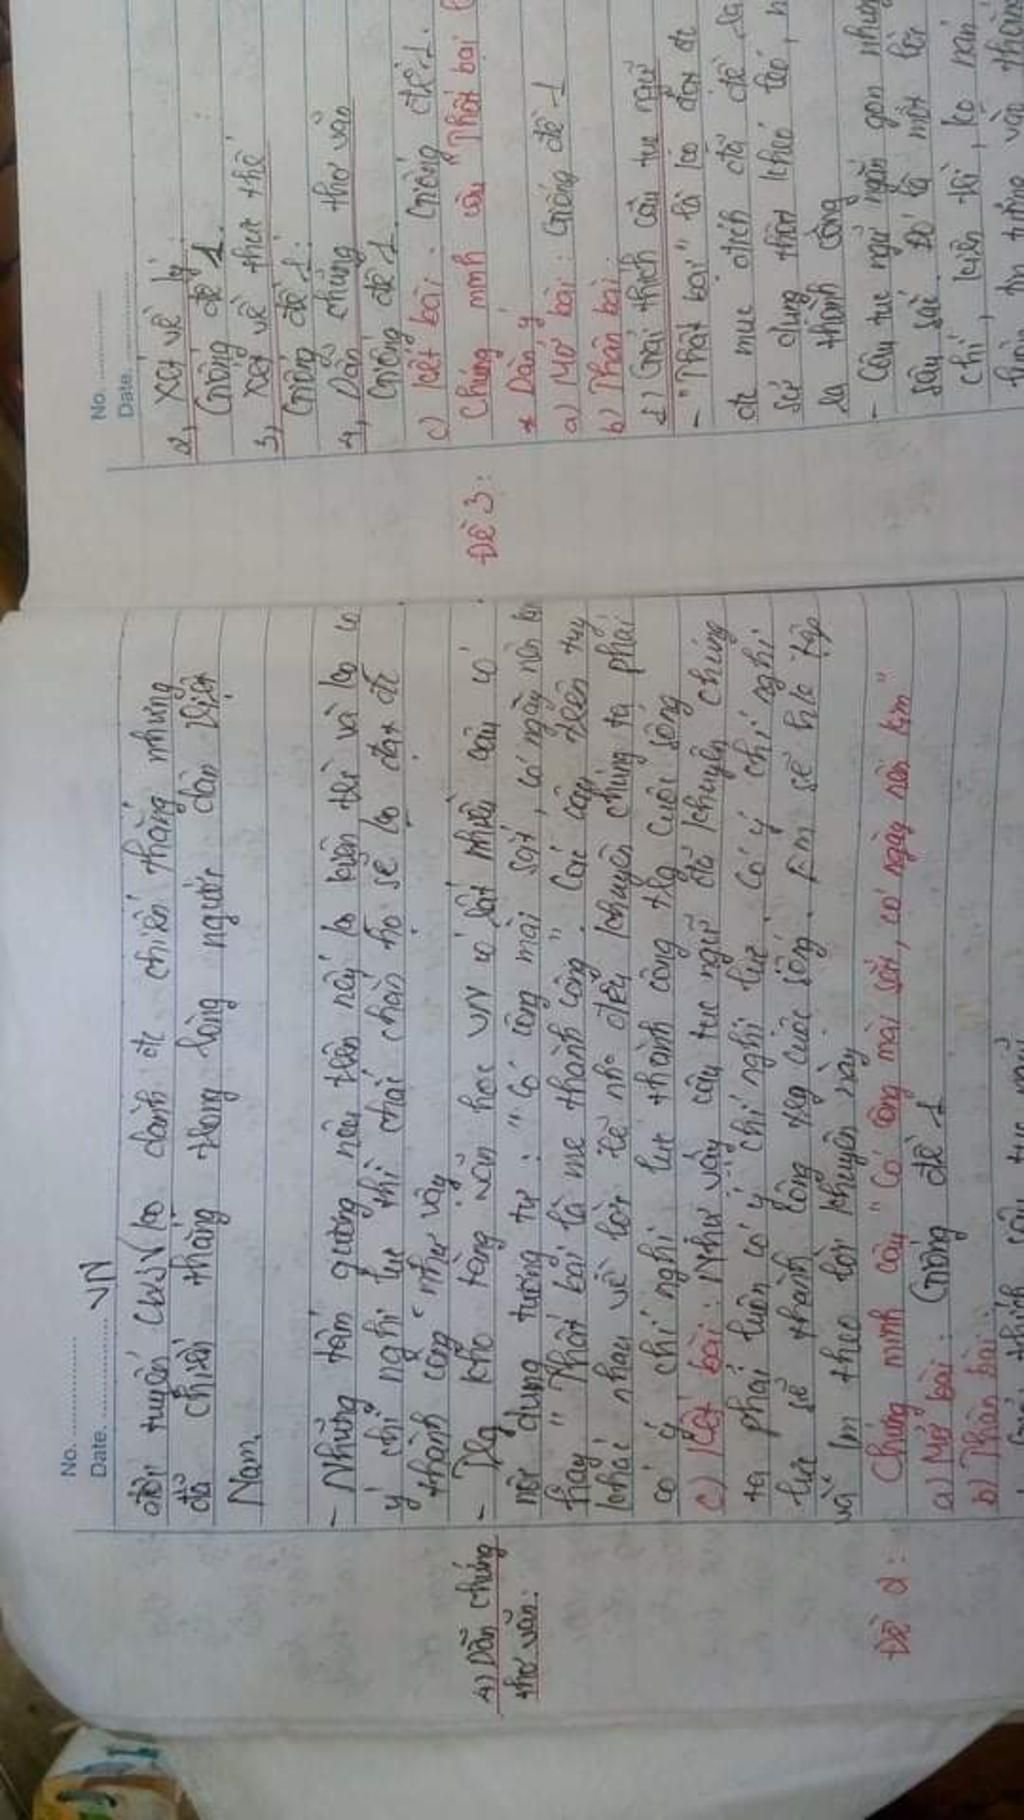 No. ............
Date. ............ VN
đội tuyển U23 VN ko dành đc chiến thắng nhưng
đã chiến thắng trong lòng người dân Việt
Nam.
- Những tấm gương nêu trên nếu ko kiên trì và ko có
ý chí nghị lực thì chắc chắn họ sẽ ko đạt đc
thành công như vậy
4) Dẫn chứng
thơ văn:
- Trg kho tàng văn học VN có rất nhiều câu có
nội dung tương tự : "Có công mài sắt, có ngày nên kim"
hay "Thất bại là mẹ thành công". Các câu trên tuy
khác nhau về lời lẽ nh đều khuyên chúng ta phải
có ý chí nghị lực thành công trg cuộc sống
c) Kết bài: Như vậy câu tục ngữ đã khuyên chúng
ta phải luôn có ý chí nghị lực. Có ý chí nghị
lực sẽ thành công trg cuộc sống. Em sẽ học tập
và làm theo lời khuyên này
Đề 2: Chứng minh câu "Có công mài sắt, có ngày nên kim"
a) Mở bài: Giống đề 1
b) Thân bài:
thích câu tục ngữ
No. ............
Date. ............
2, Xét về lý
Giống đề 1.
3) Xét về thực thế
Giống đề 1.
4, Dẫn chứng thơ văn
Giống đề 1.
c) Kết bài: Giống đề 1.
Đề 3: Chứng minh câu "Thất bại l
* Dàn ý
a) Mở bài: Giống đề 1
b) Thân bài:
1) Giải thích câu tục ngữ
- "Thất bại" là ko đạt đc
đc mục đích đã đề ra
sử dụng thật khéo léo, h
là thành công
- Câu tục ngữ ngắn gọn nhưng
sâu sắc. Đó là một lời
chí, kiên trì, ko nản
luôn tin tưởng vào thành